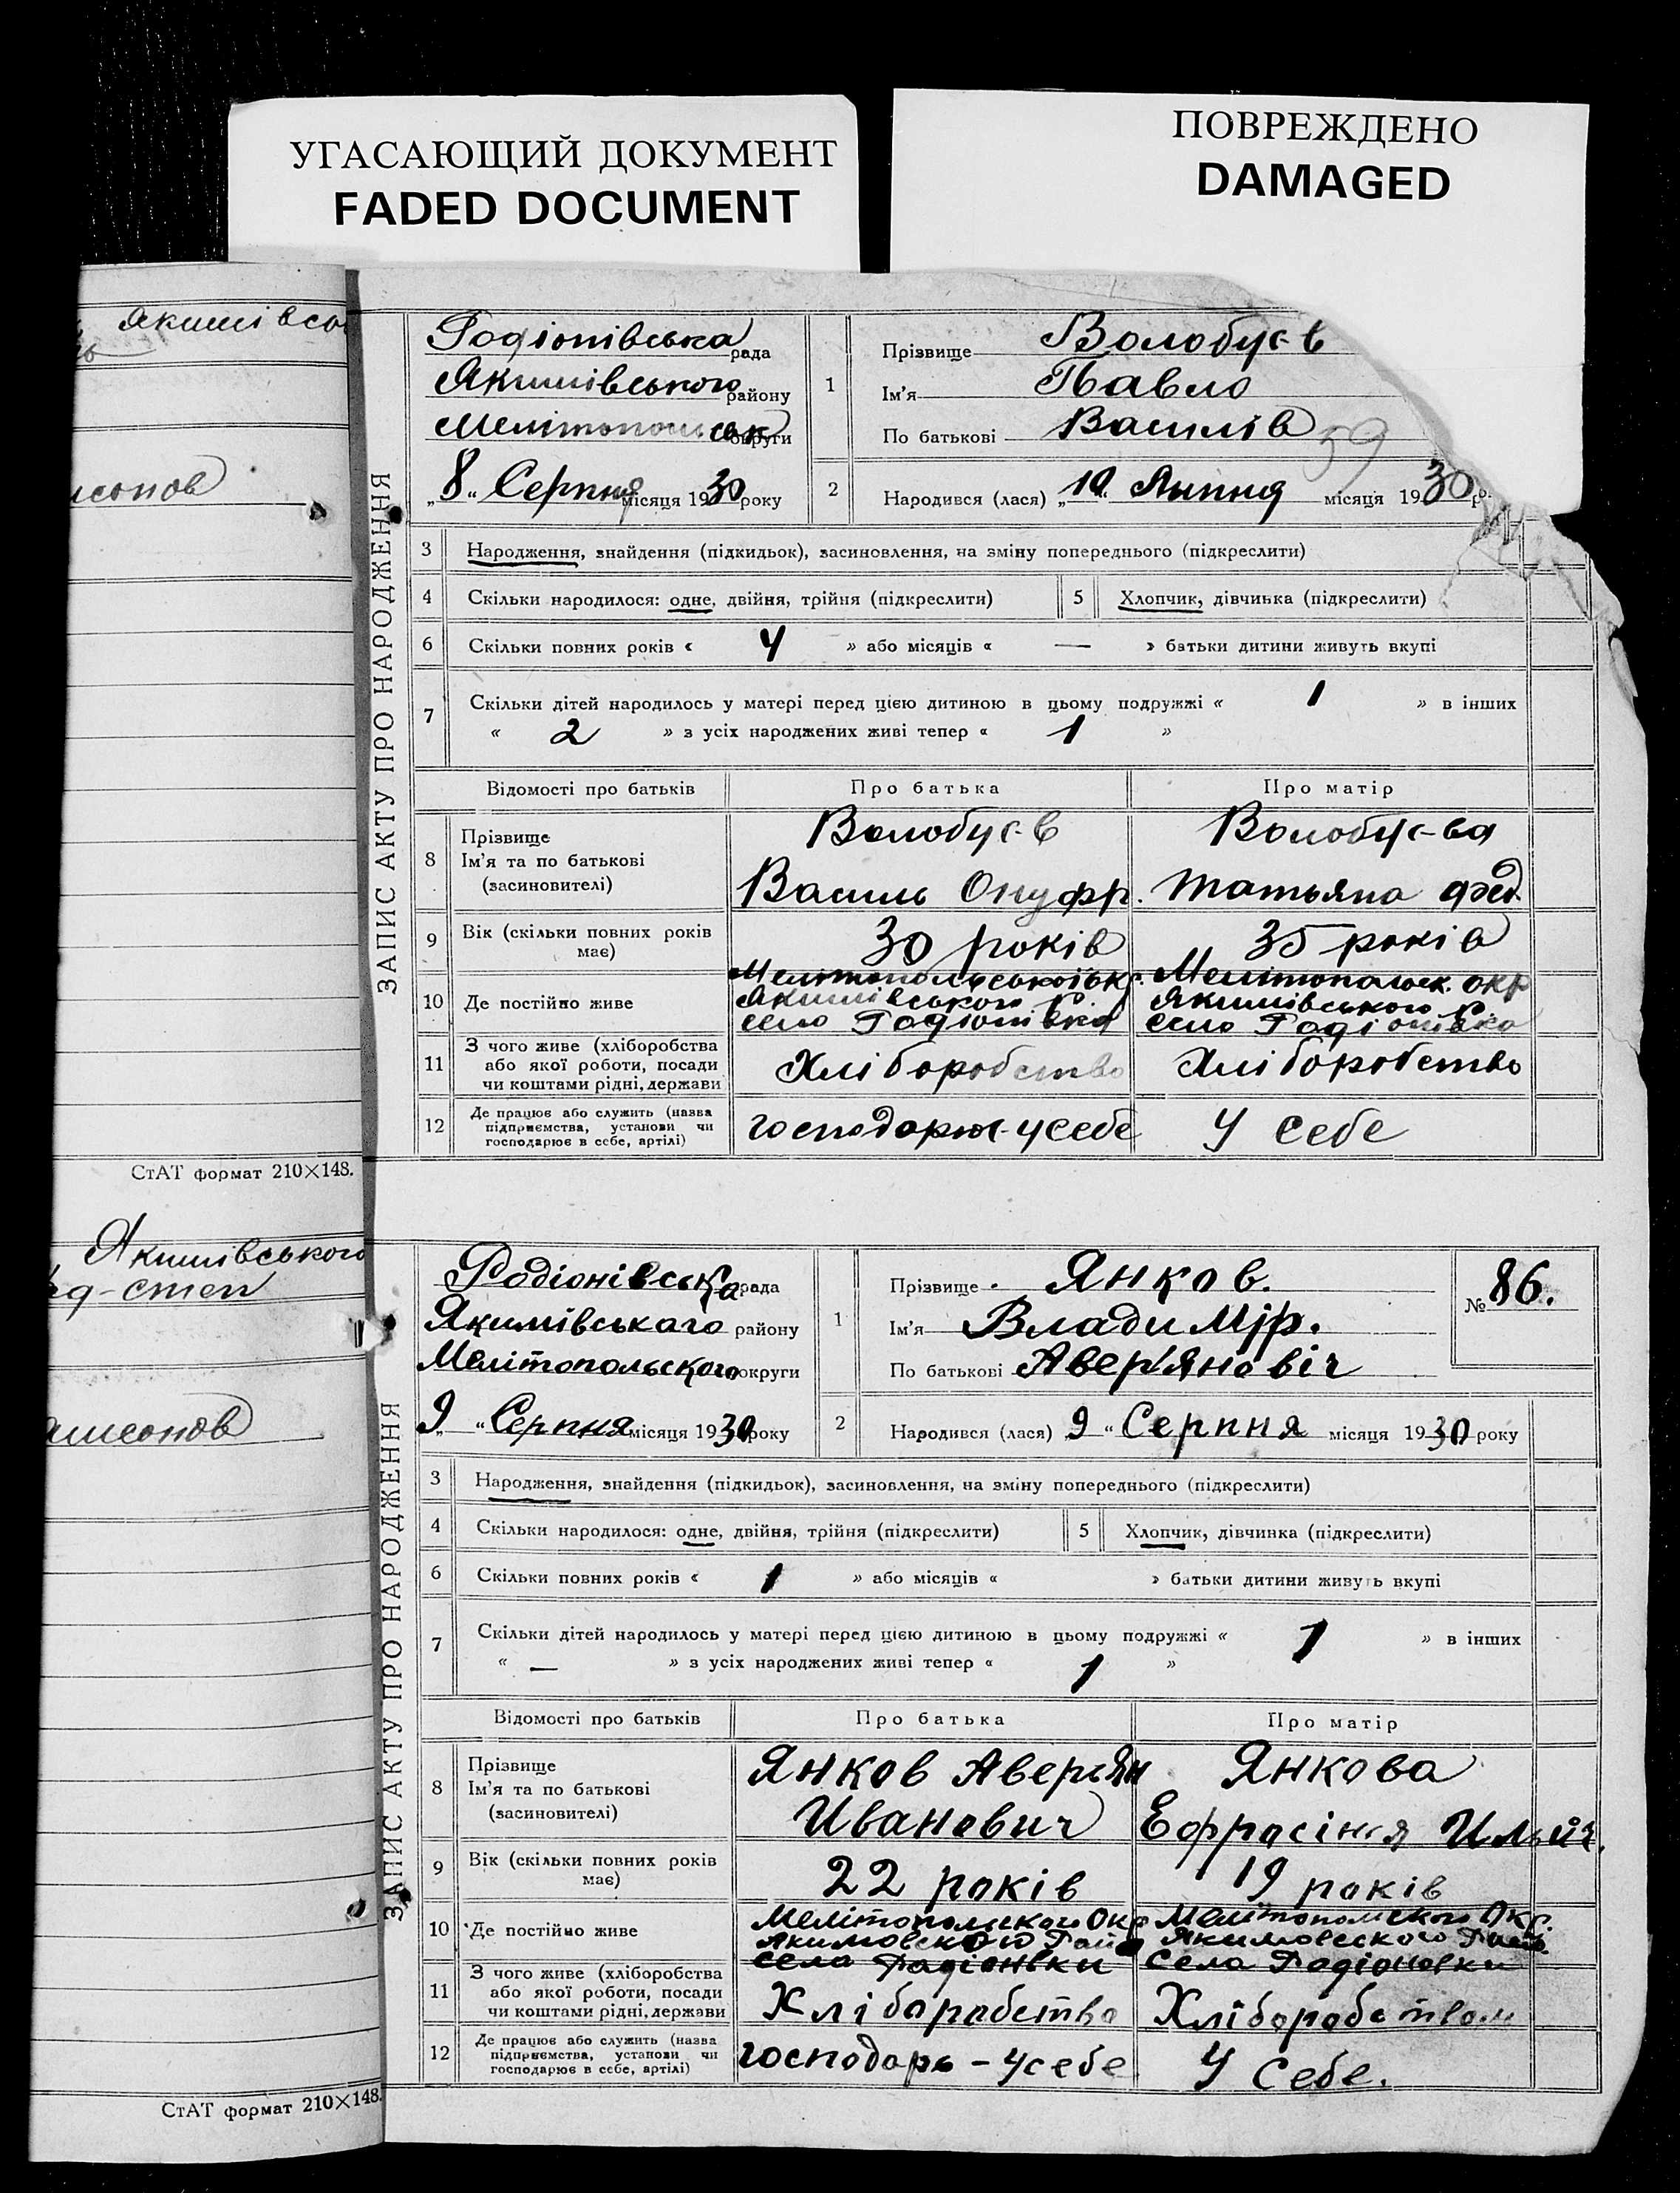 УГАСАЮЩИЙ ДОКУМЕНТ
FADED DOCUMENT
ПОВРЕЖДЕНО
DAMAGED
Якимівсь
СтАТ формат 210×148.
Якимівського
СтАТ формат 210×148.
ЗАПИС АКТУ ПРО НАРОДЖЕННЯ
Родіонівська рада
Якимівського району
Мелітопольськ округи
„8“ Серпня місяця 1930 року
1 Прізвище Волобуєв
Ім'я Павло
По батькові Василів 59
2 Народився (лася) „10“ Липня місяця 1930 р.
3 Народження, знайдення (підкидьок), засиновлення, на зміну попереднього (підкреслити)
4 Скільки народилося: одне, двійня, трійня (підкреслити) 5 Хлопчик, дівчинка (підкреслити)
6 Скільки повних років « 4 » або місяців « — » батьки дитини живуть вкупі
7 Скільки дітей народилось у матері перед цією дитиною в цьому подружжі « 1 » в інших
« 2 » з усіх народжених живі тепер « 1 »
Відомості про батьків Про батька Про матір
8 Прізвище Ім'я та по батькові (засиновителі)
Волобуєв Волобуєва
Василь Онуфр. Татьяна Фед.
9 Вік (скільки повних років має) 30 років 35 років
10 Де постійно живе
Мелітопольської окр. Мелітопольск. окр
Якимівського р. Якимівського р.
село Родіонівка село Родіонівка
11 З чого живе (хліборобства або якої роботи, посади чи коштами рідні, держави
Хліборобство Хліборобство
12 Де працює або служить (назва підприємства, установи чи господарює в себе, артілі)
господарює-у себе У себе
ЗАПИС АКТУ ПРО НАРОДЖЕННЯ
Родіонівська рада
Якимівського району
Мелітопольского округи
„9“ Серпня місяця 1930 року
1 Прізвище Янков.
Ім'я Владимір.
По батькові Авер'яновіч
№ 86.
2 Народився (лася) 9“ Серпня місяця 1930 року
3 Народження, знайдення (підкидьок), засиновлення, на зміну попереднього (підкреслити)
4 Скільки народилося: одне, двійня, трійня (підкреслити) 5 Хлопчик, дівчинка (підкреслити)
6 Скільки повних років « 1 » або місяців « » батьки дитини живуть вкупі
7 Скільки дітей народилось у матері перед цією дитиною в цьому подружжі « 1 » в інших
« — » з усіх народжених живі тепер « 1 »
Відомості про батьків Про батька Про матір
8 Прізвище Ім'я та по батькові (засиновителі)
Янков Аверьян Янкова
Иванович Ефросінія Ильин.
9 Вік (скільки повних років має) 22 років 19 років
10 Де постійно живе
Мелітопольского Окр Мелітопольского Окр.
Якимовского Рай Якимовского Рай.
Села Радіонівки Села Радіоновки
11 З чого живе (хліборобства або якої роботи, посади чи коштами рідні, держави
Хліборобство Хліборобством
12 Де працює або служить (назва підприємства, установи чи господарює в себе, артілі)
господарь-у себе У себе.